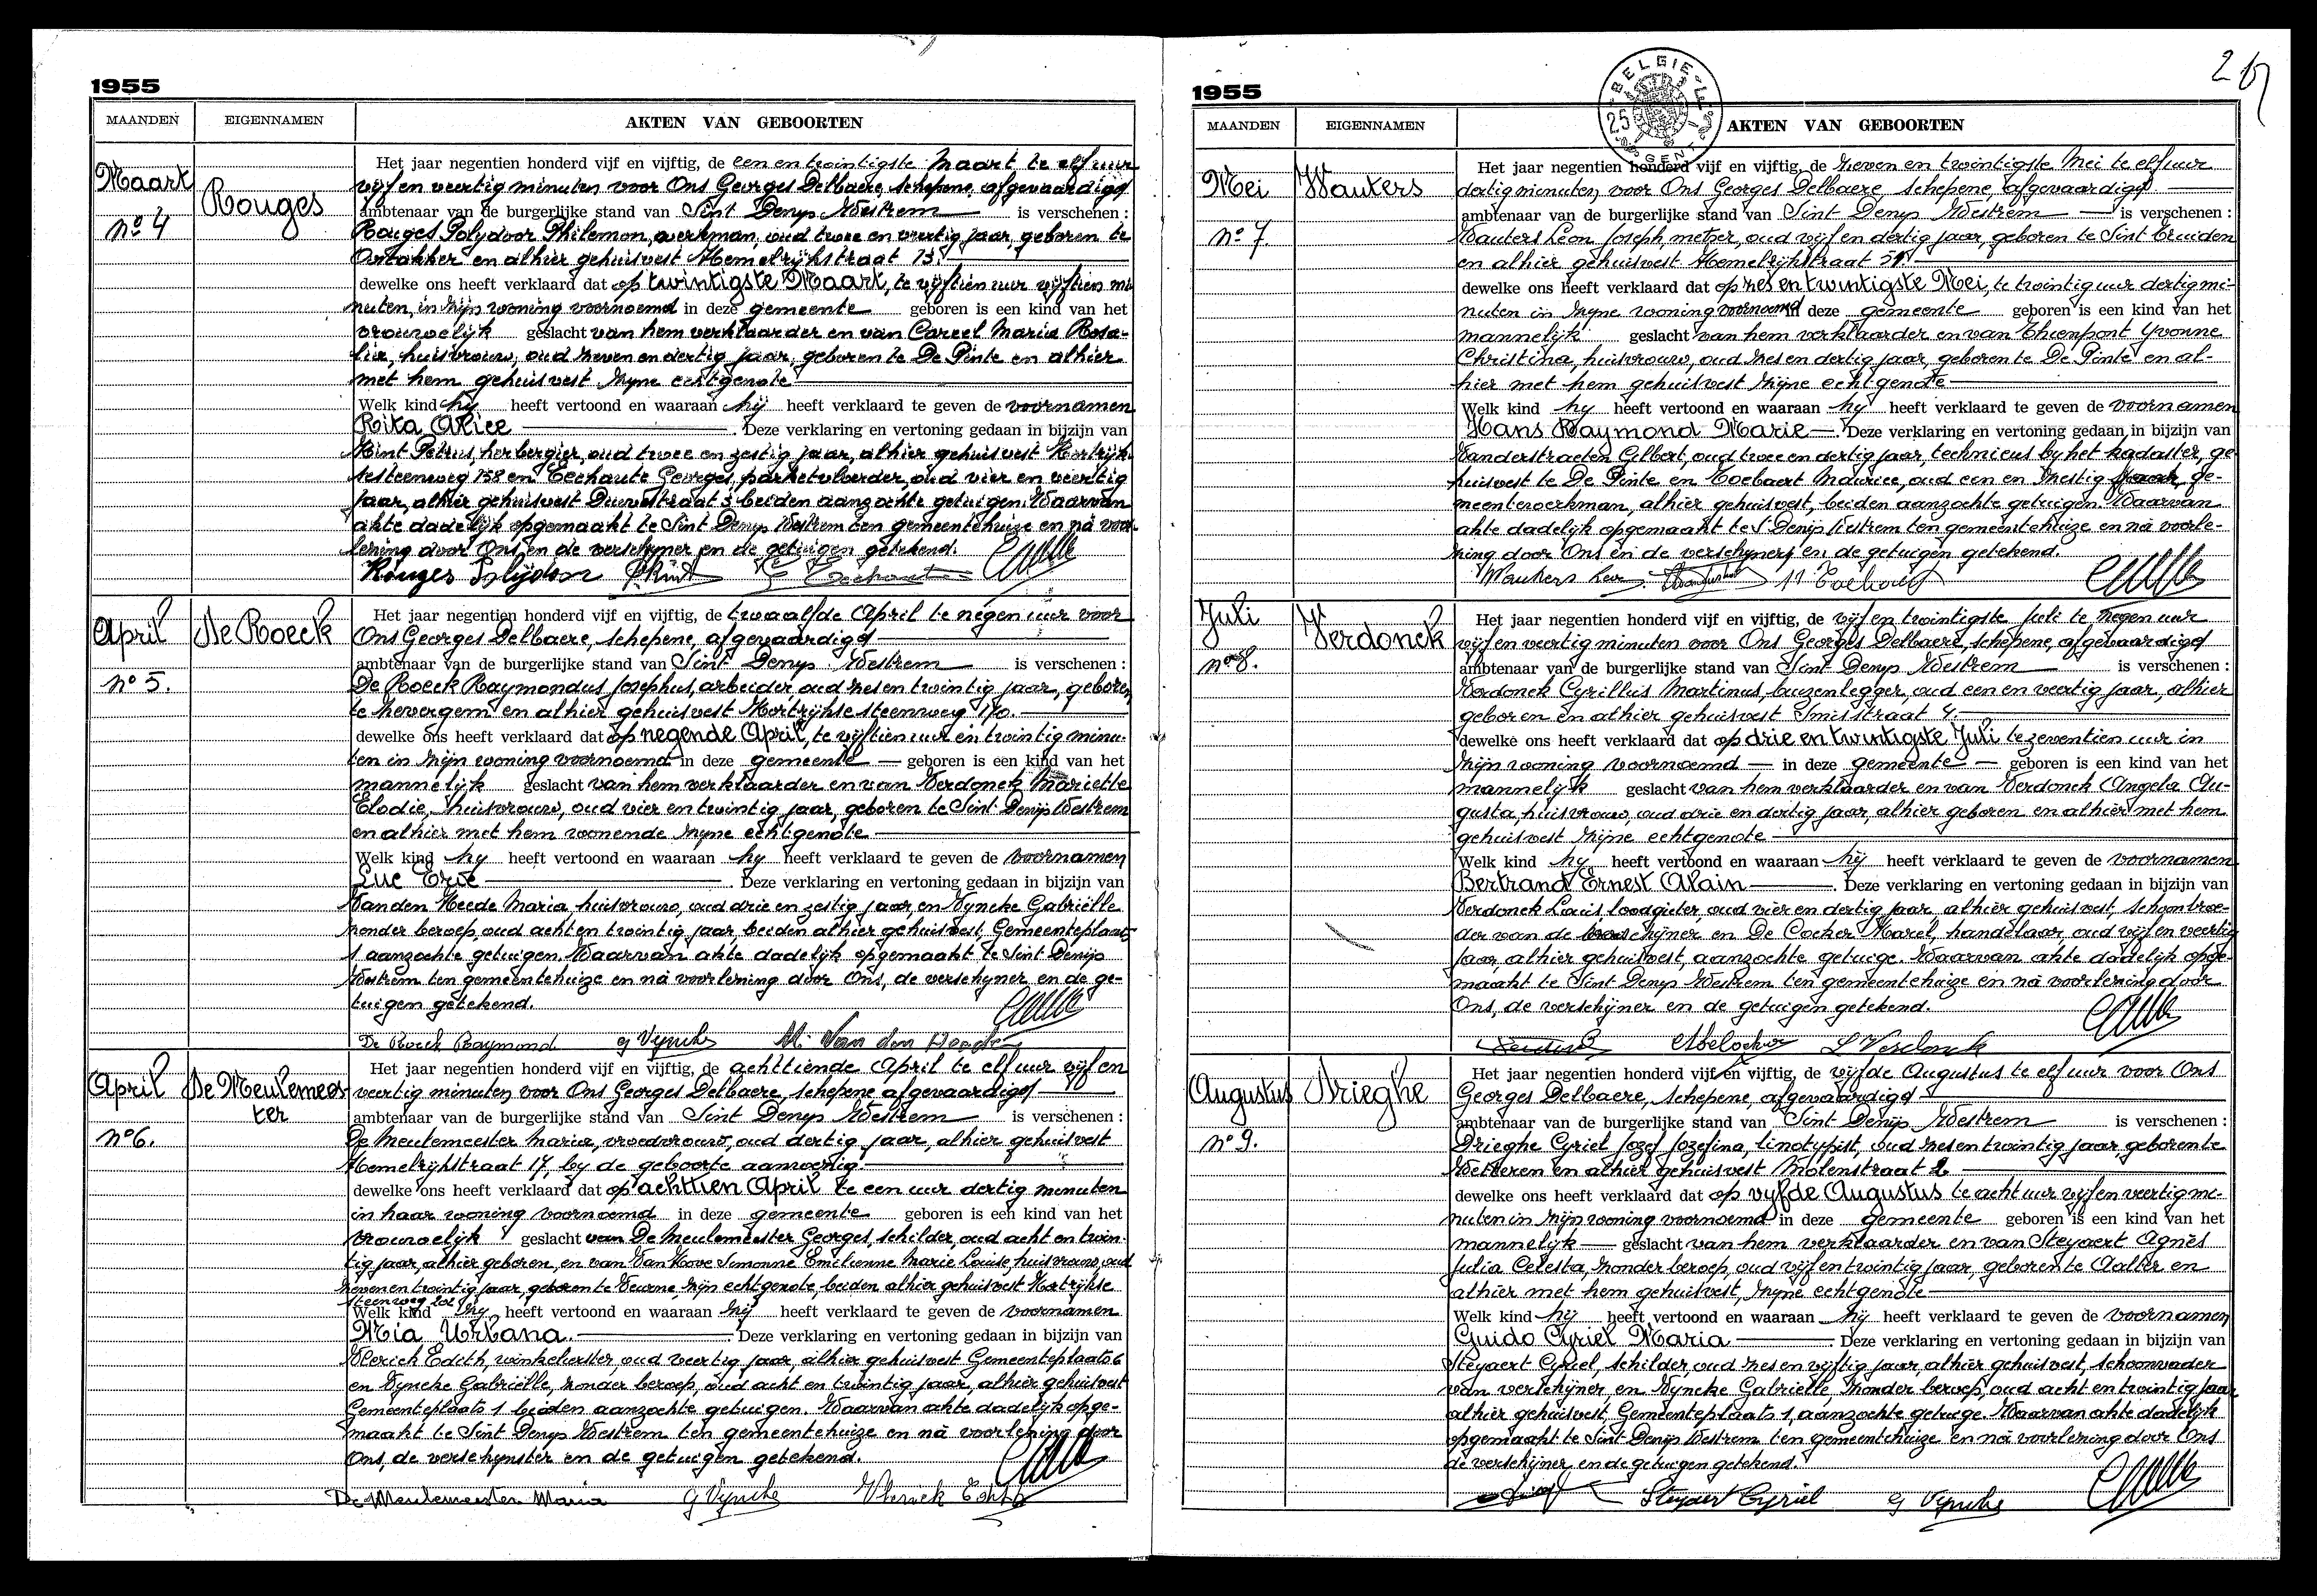 1955
MAANDEN EIGENNAMEN AKTEN VAN GEBOORTEN
Maart
Rouges
nº 4
Het jaar negentien honderd vijf en vijftig, de een en twintigste Maart te elf uur
vijf en veertig minuten voor Ons Georges Delbaere, schepene, afgevaardigd
ambtenaar van de burgerlijke stand van Sint Denys Westrem is verschenen :
Rouges Polydoor Philemon, werkman, oud twee en veertig jaar, geboren te
Oostakker en alhier gehuisvest Hemelrijkstraat 13.
dewelke ons heeft verklaard dat op twintigste Maart, te vijftien uur vijftien mi
nuten, in zijn woning voornoemd in deze gemeente geboren is een kind van het
vrouwelijk geslacht van hem verklaarder en van Careel Maria Rosa-
lia, huisvrouw, oud zeven en dertig jaar, geboren te De Pinte en alhier
met hem gehuisvest zijne echtgenote
Welk kind hij heeft vertoond en waaraan hij heeft verklaard te geven de voornamen
Rita Alice . Deze verklaring en vertoning gedaan in bijzijn van
Petrus, herbergier, oud twee en zestig jaar, alhier gehuisvest Kortrijk-
sesteenweg 158 en Eechaute Georges, parketvloerder, oud vier en veertig
jaar, alhier gehuisvest 3 beiden aanzochte getuigen. Waarvan
akte dadelijk opgemaakt te Sint Denys Westrem ten gemeentehuize en na voor-
lezing door Ons en de verschijner en de getuigen getekend.
Rouges Polydoor
April
De Roeck
nº 5.
Het jaar negentien honderd vijf en vijftig, de twaalfde April te negen uur voor
Ons Georges Delbaere, schepene, afgevaardigd
ambtenaar van de burgerlijke stand van Sint Denys Westrem is verschenen :
De Roeck Raymondus Josephus, arbeider, oud zes en twintig jaar, geboren
te Zevergem en alhier gehuisvest Kortrijkse steenweg 170.
dewelke ons heeft verklaard dat op negende April, te vijftien uur en twintig minu-
ten in zijn woning voornoemd in deze gemeente geboren is een kind van het
mannelijk geslacht van hem verklaarder en van Verdonck Mariette
Elodie, huisvrouw, oud vier en twintig jaar, geboren te Sint Denijs Westrem
en alhier met hem wonende zijne echtgenote
Welk kind hij heeft vertoond en waaraan hij heeft verklaard te geven de voornamen
Luc . Deze verklaring en vertoning gedaan in bijzijn van
Van den Heede Maria, huisvrouw, oud drie en zestig jaar, en Vyncke Gabriëlle
zonder beroep, oud acht en twintig jaar beiden alhier gehuisvest, Gemeenteplaats
1 aanzochte getuigen. Waarvan akte dadelijk opgemaakt te Sint Denijs
Westrem ten gemeentehuize en nà voorlezing door Ons, de verschijner en de ge-
tuigen getekend.
De Roeck Raymond G Vyncke M. Van den Heede
April
De Meulemees
ter
nº 6.
Het jaar negentien honderd vijf en vijftig, de achttiende April te elf uur vijf en
veertig minuten voor Ons Georges Delbaere, schepene afgevaardigd
ambtenaar van de burgerlijke stand van Sint Denys Westrem is verschenen :
De Meulemeester Maria, vroedvrouw, oud dertig jaar, alhier gehuisvest
Hemelrijkstraat 17, bij de geboorte aanwezig.
dewelke ons heeft verklaard dat op achttien April te een uur dertig minuten
in haar woning voornoemd in deze gemeente geboren is een kind van het
vrouwelijk geslacht van De Meulemeester Georges, schilder, oud acht en twin-
tig jaar, alhier geboren, en van Van Hove Simonne Emilienne Marie Louise, huisvrouw, oud
zeven en twintig jaar, geboren te Deurne, zijn echtgenote, beiden alhier gehuisvest Kortrijkse
steenweg 202
Welk kind zij heeft vertoond en waaraan zij heeft verklaard te geven de voornamen
Mia Urbana. Deze verklaring en vertoning gedaan in bijzijn van
Vlerick Edith, winkelierster, oud veertig jaar, alhier gehuisvest Gemeenteplaats 6
en Vyncke Gabriëlle, zonder beroep, oud acht en twintig jaar, alhier gehuisvest
Gemeenteplaats 1 beiden aanzochte getuigen. Waarvan akte dadelijk opge-
maakt te Sint Denys Westrem ten gemeentehuize en nà voorlezing door
Ons, de verschijnster en de getuigen getekend.
De Meulemeester Maria G Vyncke Vlerick Edith
1955
BELGIE
25
GENT
MAANDEN EIGENNAMEN AKTEN VAN GEBOORTEN
Mei
Wauters
nº 7.
Het jaar negentien honderd vijf en vijftig, de zeven en twintigste Mei te elf uur
dertig minuten, voor Ons Georges Delbaere schepene, afgevaardigd
ambtenaar van de burgerlijke stand van Sint Denys Westrem is verschenen :
Wauters Leon Joseph, metser, oud vijf en dertig jaar, geboren te Sint Truiden
en alhier gehuisvest Hemelrijkstraat 51.
dewelke ons heeft verklaard dat op zes en twintigste Mei, te twintig uur dertig mi-
nuten in zijne woning voornoemd in deze gemeente geboren is een kind van het
mannelijk geslacht van hem verklaarder en van Thienpont Yvonne
Christina, huisvrouw, oud zes en dertig jaar, geboren te De Pinte en al-
hier met hem gehuisvest zijne echtgenote
Welk kind hij heeft vertoond en waaraan hij heeft verklaard te geven de voornamen
Hans Raymond Marie . Deze verklaring en vertoning gedaan in bijzijn van
Vanderstraeten Gilbert, oud twee en dertig jaar, technicus bij het kadaster, ge
huisvest te De Pinte en Coebaert Maurice, oud een en zestig jaar, ge-
meentewerkman, alhier gehuisvest, beiden aanzochte getuigen. Waarvan
akte dadelijk opgemaakt te S. Denijs Westrem ten gemeentehuize en nà voorle-
zing door Ons en de verschijner, en de getuigen getekend.
Wauters Leon
Juli
Verdonck
nº 8.
Het jaar negentien honderd vijf en vijftig, de vijf en twintigste juli te negen uur
vijf en veertig minuten voor Ons Georges Delbaere, schepene, afgevaardigd
ambtenaar van de burgerlijke stand van Sint Denys Westrem is verschenen :
Verdonck Cyrillus Martinus, buizenlegger, oud een en veertig jaar, alhier
geboren en alhier gehuisvest Smisstraat 4.
dewelke ons heeft verklaard dat op drie en twintigste Juli te zeventien uur in
zijn woning voornoemd in deze gemeente geboren is een kind van het
mannelijk geslacht van hem verklaarder en van Verdonck Angela Au-
gusta, huisvrouw, oud drie en dertig jaar, alhier geboren en alhier met hem
gehuisvest zijne echtgenote
Welk kind hij heeft vertoond en waaraan hij heeft verklaard te geven de voornamen
Bertrand Ernest Alain . Deze verklaring en vertoning gedaan in bijzijn van
Verdonck Louis, loodgieter, oud vier en dertig jaar alhier gehuisvest, schoonbroe-
der van de verschijner en De Cocker Marcel, handelaar, oud vijf en veertig
jaar, alhier gehuisvest, aanzochte getuige. Waarvan akte dadelijk opge-
maakt te Sint Denys Westrem ten gemeentehuize en nà voorlezing door
Ons, de verschijner en de getuigen getekend.
L Verdonck
Augustus
Drieghe
nº 9.
Het jaar negentien honderd vijf en vijftig, de vijfde Augustus te elf uur voor Ons
Georges Delbaere, schepene, afgevaardigd
ambtenaar van de burgerlijke stand van Sint Denijs Westrem is verschenen :
Drieghe Cyriel Jozef Jozefina, linotypist, oud zes en twintig jaar, geboren te
Wetteren en alhier gehuisvest Molenstraat 2
dewelke ons heeft verklaard dat op vijfde Augustus te acht uur vijf en veertig mi-
nuten in zijn woning voornoemd in deze gemeente geboren is een kind van het
mannelijk geslacht van hem verklaarder en van Steyaert Agnès
Julia Celesta, zonder beroep, oud vijf en twintig jaar, geboren te Aalter en
alhier met hem gehuisvest, zijne echtgenote
Welk kind hij heeft vertoond en waaraan hij heeft verklaard te geven de voornamen
Guido Cyriel Maria . Deze verklaring en vertoning gedaan in bijzijn van
Steyaert Cyriel, schilder, oud zes en vijftig jaar, alhier gehuisvest, schoonvader
van verschijner, en Vyncke Gabriëlle, zonder beroep, oud acht en twintig jaar
alhier gehuisvest, Gemeenteplaats 1, aanzochte getuige. Waarvan akte dadelijk
opgemaakt te Sint Denijs Westrem ten gemeentehuize en nà voorlezing door Ons
de verschijner, en de getuigen getekend.
Steyaert Cyriel G Vyncke